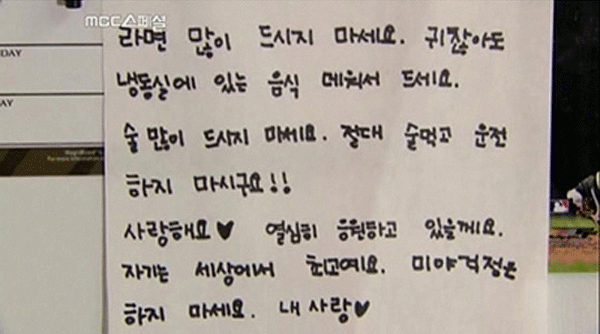 MCC스페셜
라면 많이 드시지 마세요. 귀찮아도
냉동실에 있는 음식 데워서 드세요.
술 많이 드시지 마세요. 절대 술먹고 운전
하지 마시구요!!
사랑해요♥ 열심히 응원하고 있을께요.
자기는 세상에서 최고예요. 미야걱정은
하지 마세요. 내 사랑♥
DAY
AY